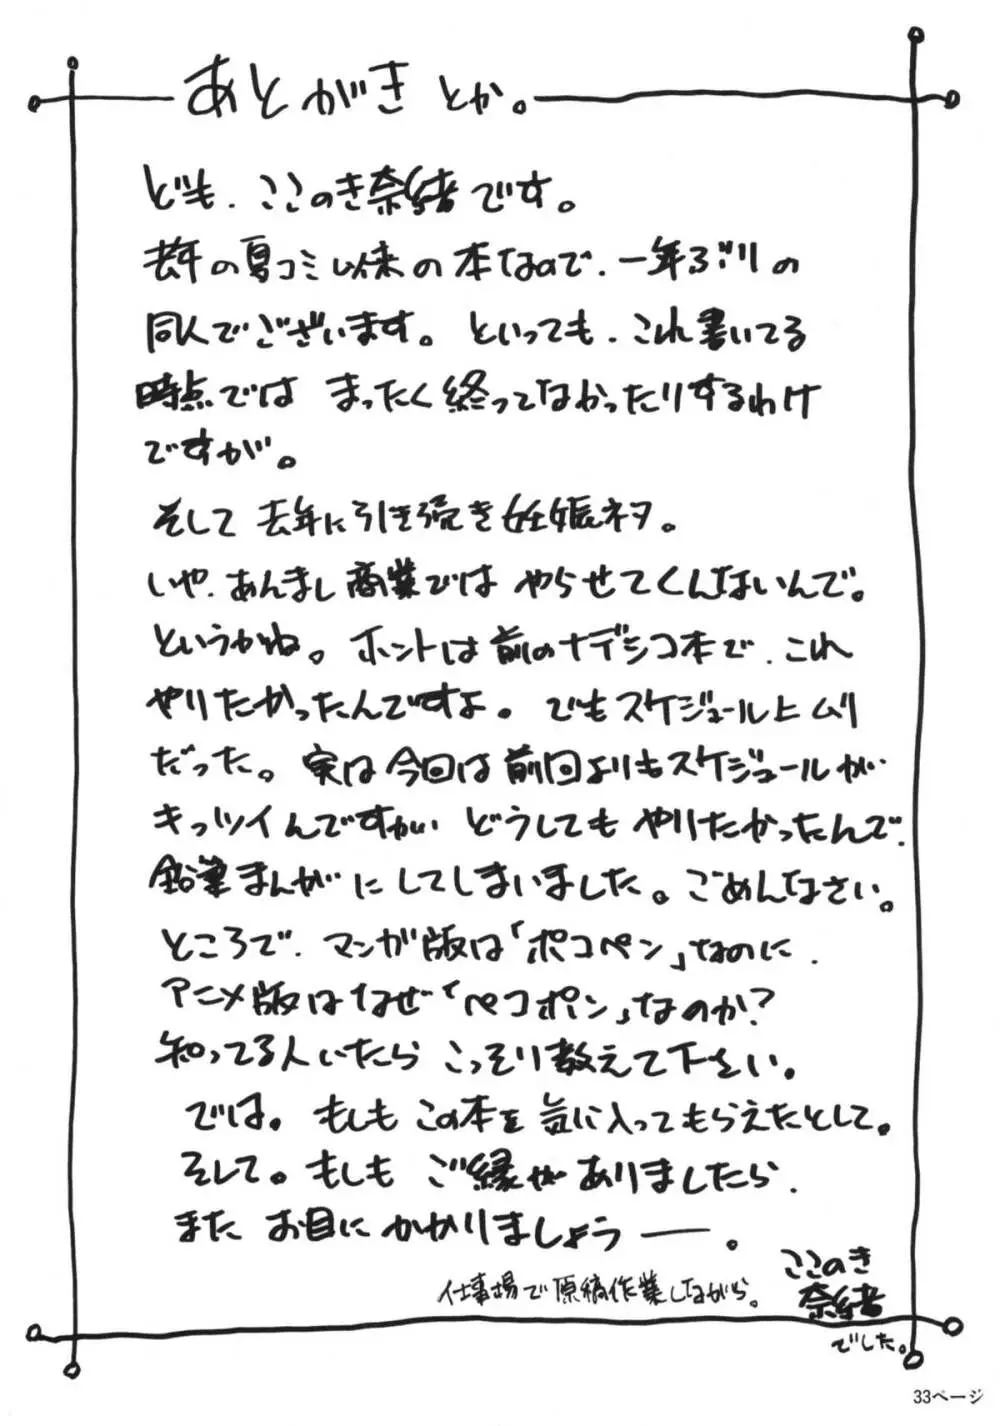 あとがきとか。
ども、ここのき奈緒です。
去年の夏コミ以来の本なので、一年ぶりの
同人でございます。といっても、これ書いてる
時点ではまったく終ってなかったりするわけ
ですが。
そして去年に引き続き妊娠ネタ。
いや、あんまし商業ではやらせてくんないんで。
というかね。ホントは前のナデシコ本で、これ
やりたかったんですよ。でもスケジュール上ムリ
だった。実は今回は前回よりもスケジュールが
キッツイんですがどうしてもやりたかったんで、
鉛筆まんがにしてしまいました。ごめんなさい。
ところで、マンガ版は「ポコペン」なのに、
アニメ版はなぜ「ペコポン」なのか?
知ってる人いたらこっそり教えて下さい。
では。もしもこの本を気に入ってもらえたとして。
そして。もしもご縁がありましたら、
またお目にかかりましょうー。
仕事場で原稿作業しながら。
ここのき
奈緒
でした。
33ページ